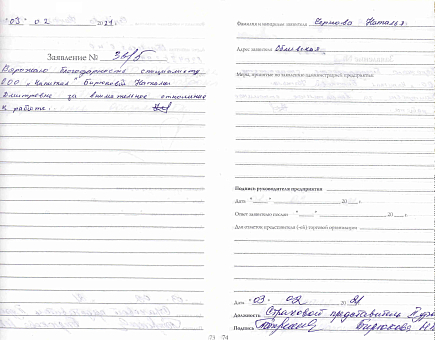 03 02 2021
Заявление № 36/5
Выражаю благодарность специалисту
ООО "Капитал" Бирюковой Наталье
Дмитриевне за внимательное отношение
к работе.
Фамилия и инициалы заявителя Чернова Наталья
Адрес заявителя Обливская
Меры, принятые по заявлению администрацией предприятия:
Подпись руководителя предприятия
Дата " " 20 г.
Ответ заявителю послан " " 20 г.
Для отметок представителя (-ей) торговой организации
Дата 03 02 2021
Должность Страховой представитель
Подпись Бирюкова Н
73 74